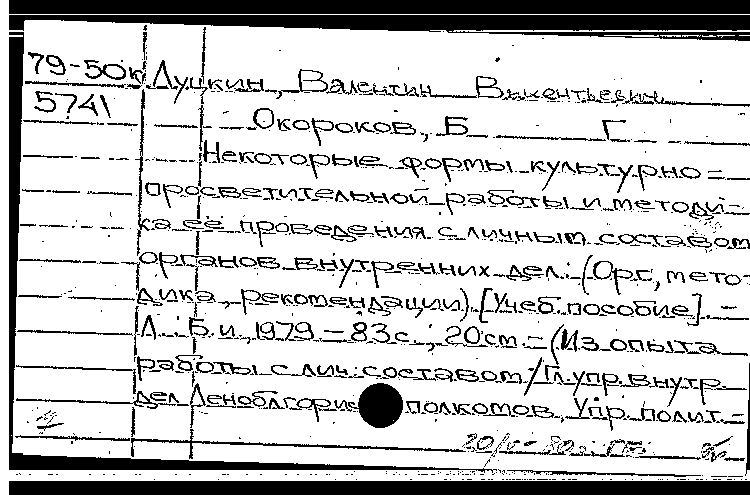 79-50к Луцкин, Валентин Викентьевич
5741
Окороков, Б Г
Некоторые формы культурно=
просветительной работы и методи-
ка её проведения с личным составом
органов внутренних дел: (Орг., мето-
дика, рекомендации). [Учеб. пособие]. -
Л.: Б.и., 1979 - 83с.; 20см. - (Из опыта
работы с лич. составом / Гл. упр. внутр.
дел Леноблгорис полкомов, Упр. полит. -